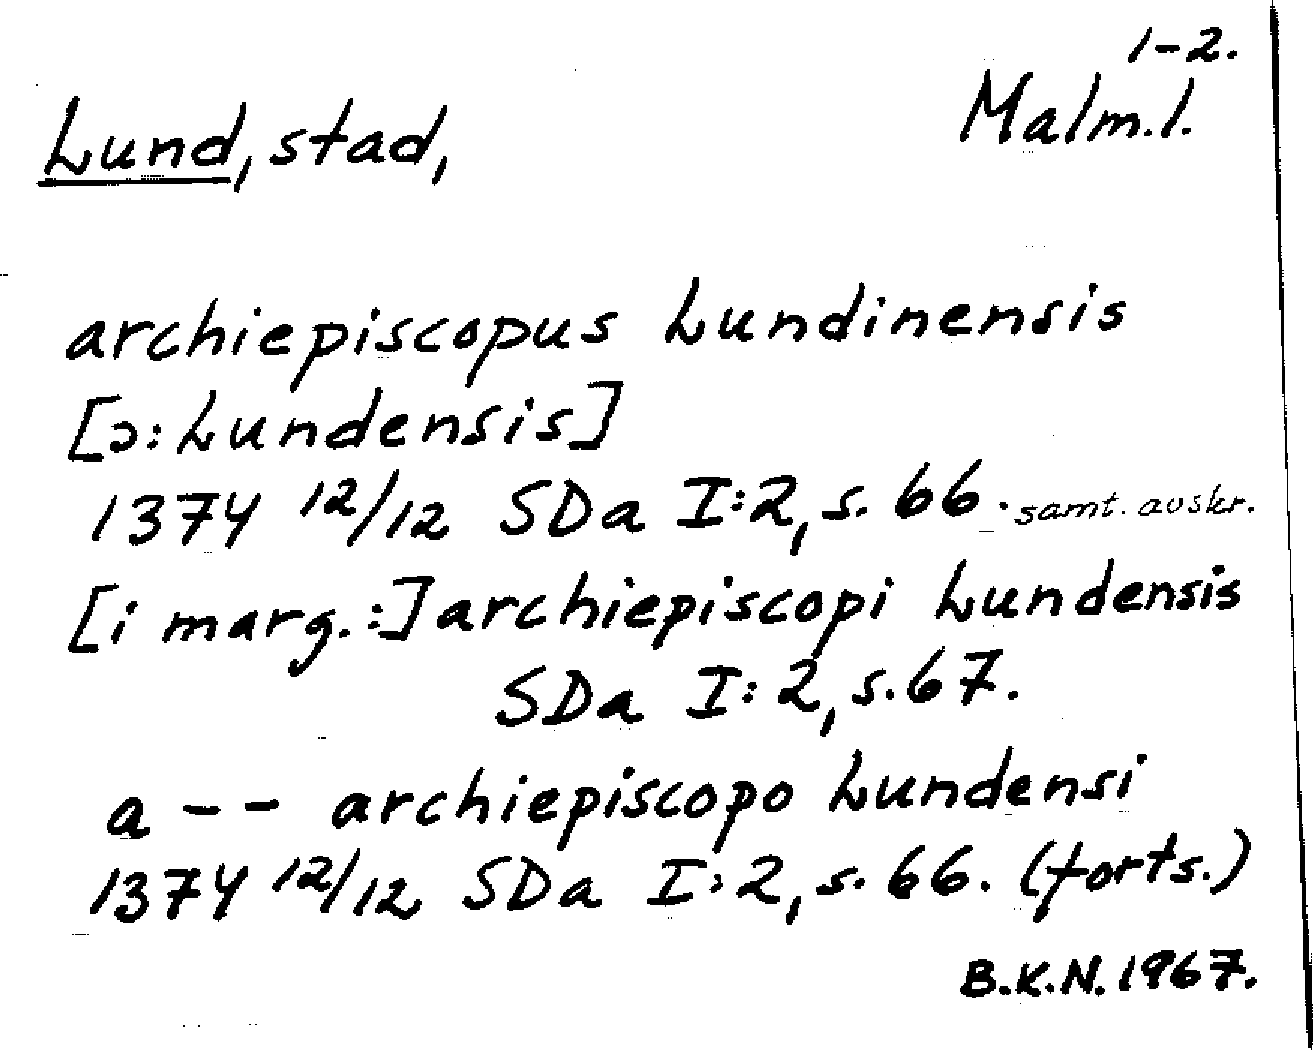 1-2.
Lund, stad, Malm.l.
archiepiscopus Lundinensis
[ɔ: Lundensis]
1374 12/12 SDa I:2, s. 66. samt. avskr.
[i marg.:] archiepiscopi Lundensis
SDa I:2, s. 67.
a -- archiepiscopo Lundensi
1374 12/12 SDa I:2, s. 66. (forts.)
B.K.N. 1967.